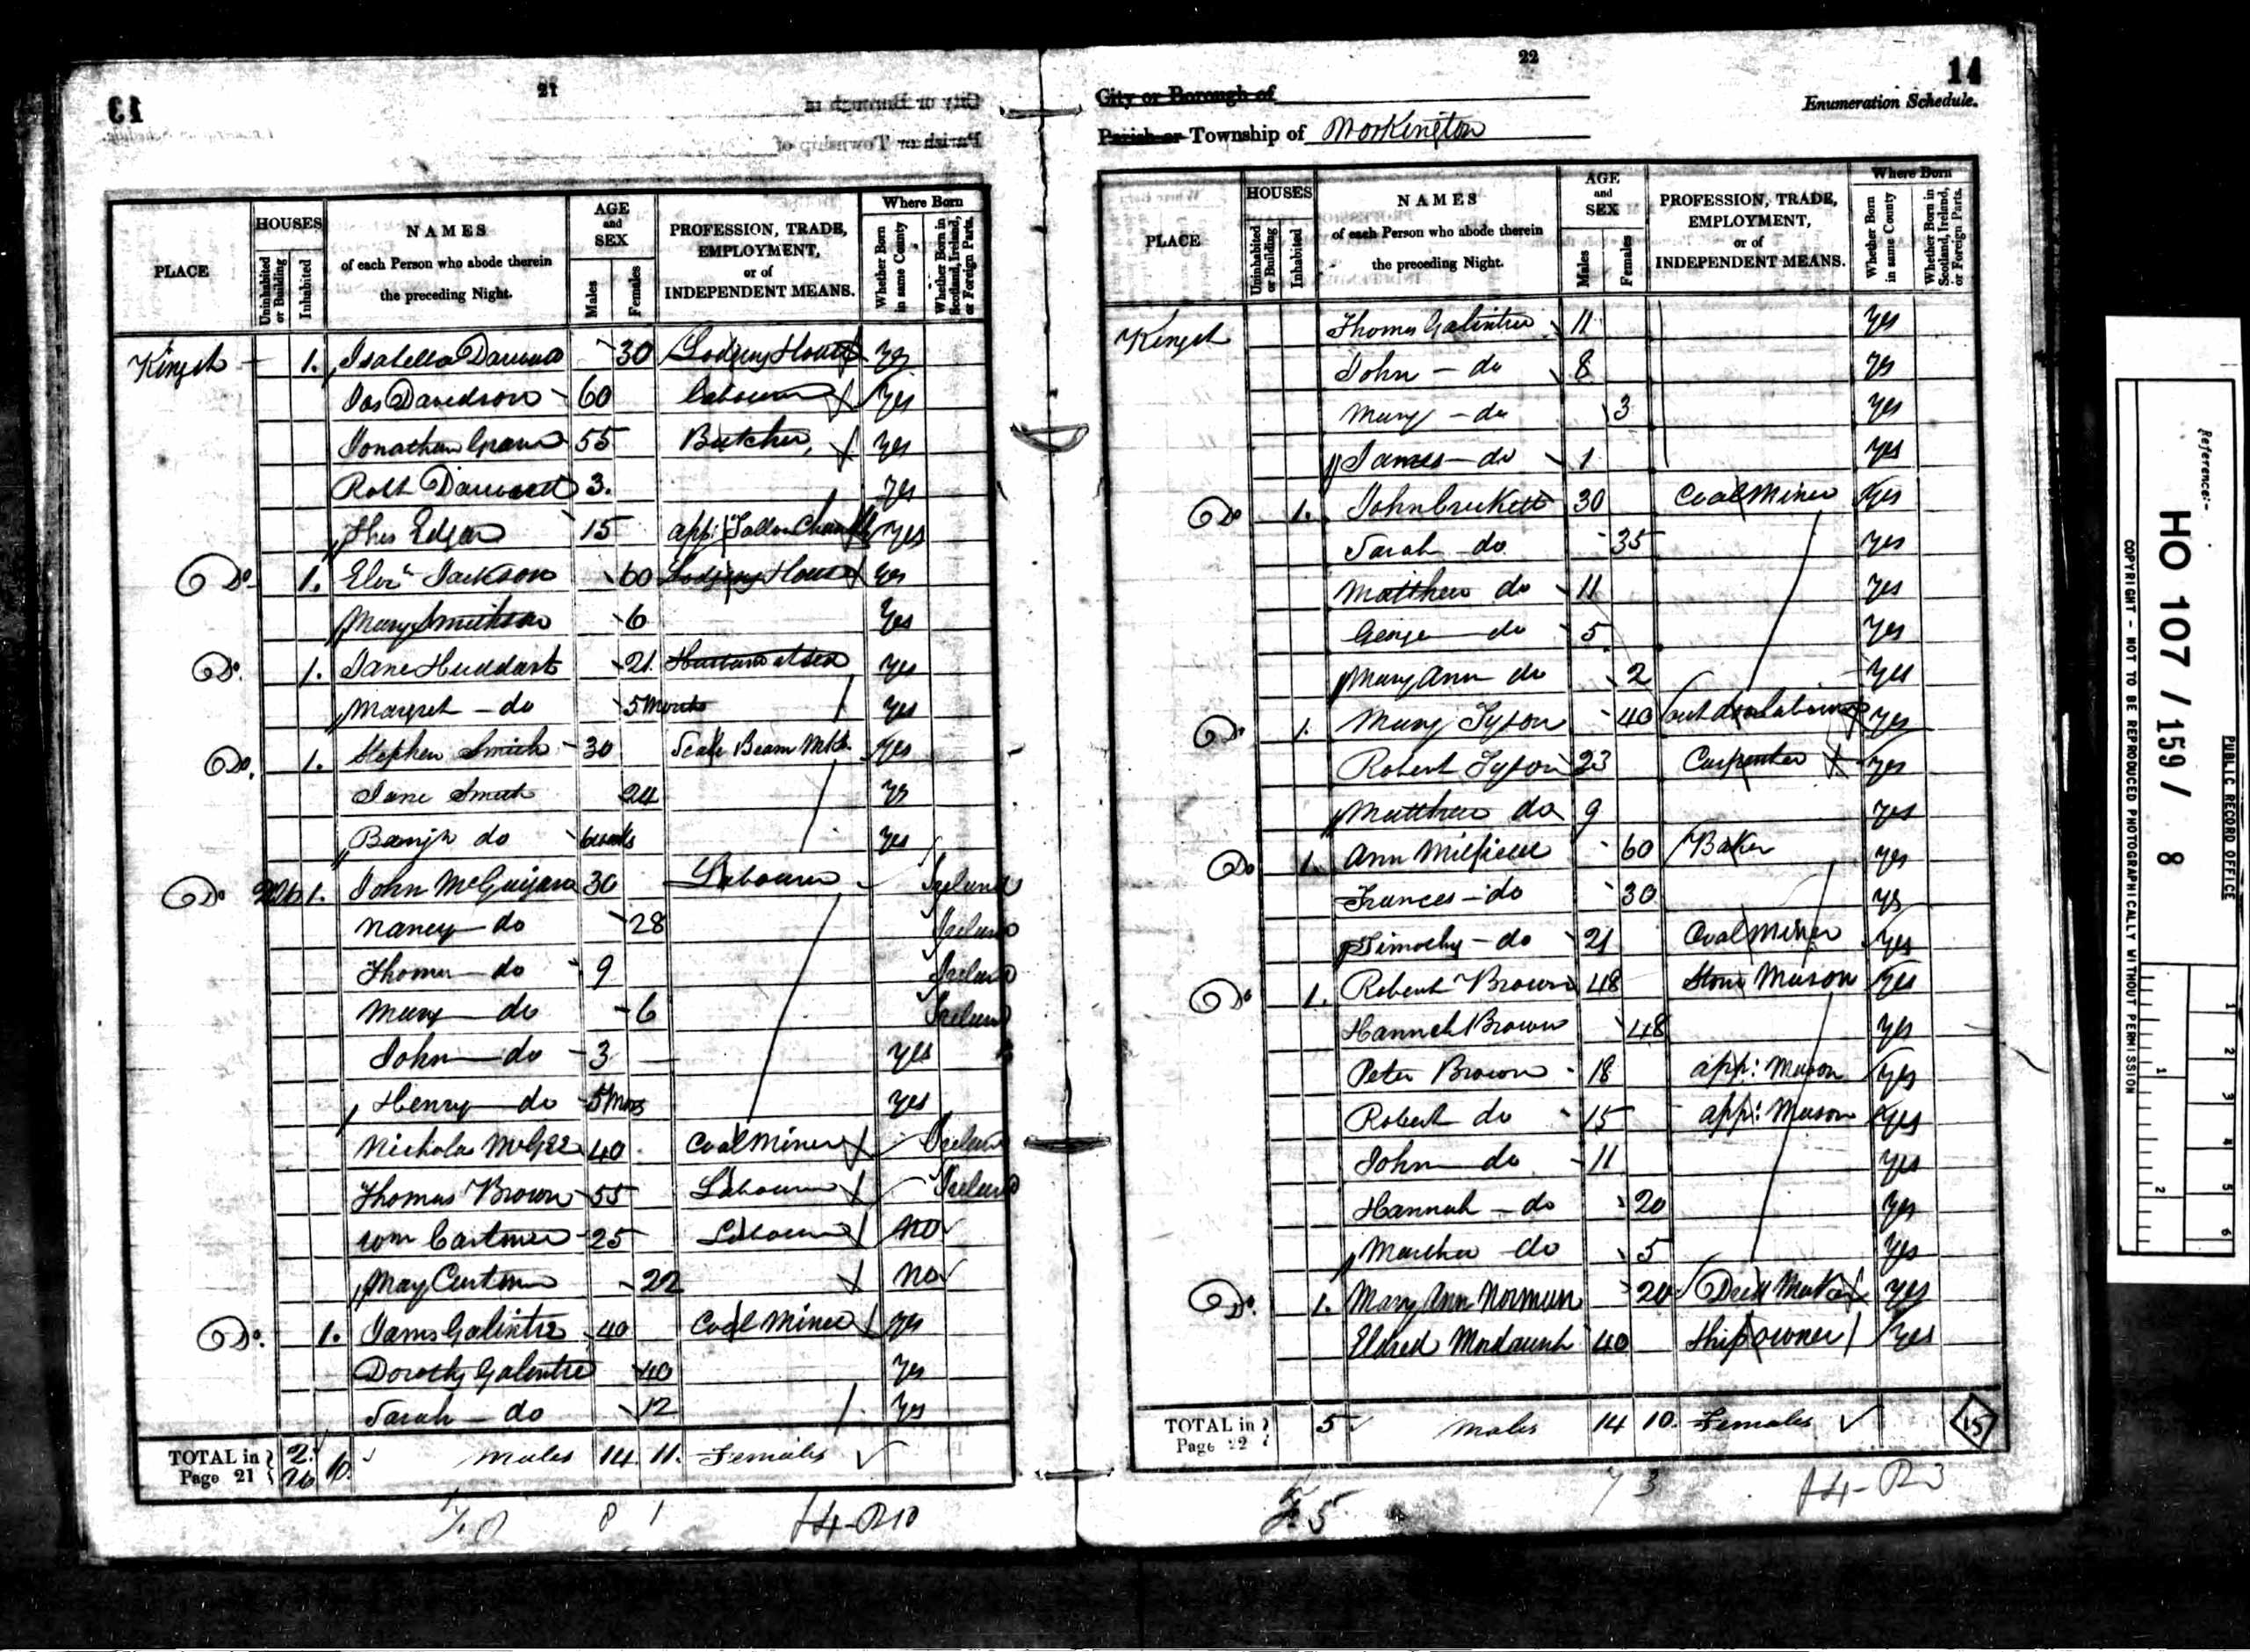 13
21
PLACE
HOUSES
Uninhabited or Building
Inhabited
NAMES
of each Person who abode therein
the preceding Night.
AGE
and
SEX
Males
Females
PROFESSION, TRADE,
EMPLOYMENT,
or of
INDEPENDENT MEANS.
Where Born
Whether Born in same County
Whether Born in Scotland, Ireland, or Foreign Parts.
King st 1. Isabella 30 Lodging House Yes
Jos Davidson 60 Labourer Yes
Jonathan 55 Butcher Yes
Robt 3. Yes
Thos Edgar 15 app: Tallow Yes
Do 1. Elizth Jackson 60 Lodging House Yes
Mary 6 Yes
Do. 1. Jane Huddart 21 Husband at Sea Yes
Margret - do 5 Months Yes
Do. 1. Stephen Smith 30 Scale Beam Mkr Yes
Jane Smith 24 Yes
Benjn do 6 weeks Yes
Do 1. John 30 Labourer Ireland
Nancy do 28 Ireland
Thomas do 9 Ireland
Mary do 6 Ireland
John do 3 Yes
Henry do 5 Mos Yes
Nicholas McGee 40 Coal Miner Ireland
Thomas Brown 55 Labourer Ireland
Wm 25 Labourer No
May 22 No
Do. 1. James Galintre 40 Coal Miner Yes
Dorothy Galentre 40 Yes
Sarah - do 12 Yes
TOTAL in Page 21 10 Males 14 11. Females
22
14
City or Borough of
Enumeration Schedule.
Parish or Township of Workington
PLACE
HOUSES
Uninhabited or Building
Inhabited
NAMES
of each Person who abode therein
the preceding Night.
AGE
and
SEX
Males
Females
PROFESSION, TRADE,
EMPLOYMENT,
or of
INDEPENDENT MEANS.
Where Born
Whether Born in same County
Whether Born in Scotland, Ireland, or Foreign Parts.
King st Thomas Galintre 11 Yes
John - do 8 Yes
Mary - do 3 Yes
James - do 1 Yes
Do 1. John Crickett 30 Coal Miner Yes
Sarah do 35 Yes
Matthew do 11 Yes
George do 5 Yes
Mary Ann do 2 Yes
Do. 1. Mary Tyson 40 Yes
Robert Tyson 23 Carpenter Yes
Matthew do 9 Yes
Do 1. Ann 60 Baker Yes
Frances - do 30 Yes
Timothy - do 21 Coal Miner Yes
Do 1. Robert Brown 48 Stone Mason Yes
Hannah Brown 48 Yes
Peter Brown 18 app: Mason Yes
Robert do 15 app: Mason Yes
John do 11 Yes
Hannah - do 20 Yes
Martha do 5 Yes
Do. 1. Mary Ann Norman 20 Dress Maker Yes
Eldred Mordaunt 40 Ship owner Yes
TOTAL in Page 22 5 Males 14 10. Females
15
Reference:-
HO 107 / 159 / 8
PUBLIC RECORD OFFICE
COPYRIGHT - NOT TO BE REPRODUCED PHOTOGRAPHICALLY WITHOUT PERMISSION
1
2
3
4
5
6
1
2